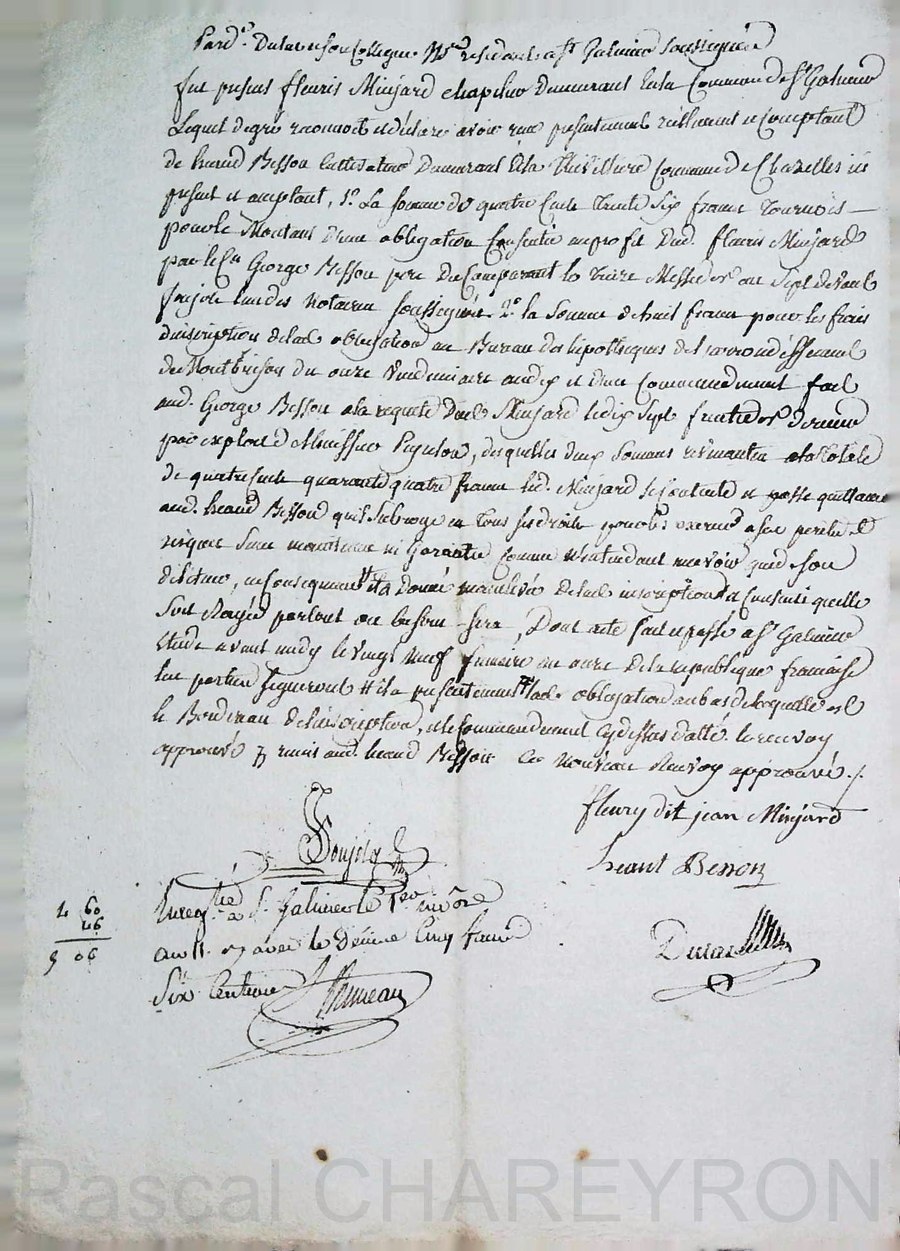 Pard.t Dulac et son collegue N.res residants a S.t Galmier soussignés
fut present fleuris Minjard chapelier demeurant en la commune de St Galmier
Lequel de gré reconnoit et déclare avoir recu presentement réellement et comptant
de heand Besson cultivateur demeurant commune de Chazelles ici
present et acceptant, 1.° La somme de quatre cents trente six francs tournois
pour le montant d'une obligation consentie au profit dud. fleuris Minjard
par le feu George Besson pere du comparant le treize Messidor an sept devant
Soujole l'un des notaires soussignés 2.° la somme de huit francs pour les frais
d'inscription de lad obligation au Bureau des hipothèques de l'arrondissement
de Montbrison du onze vendemiaire an dix et d'un commandement fait
aud. George Besson a la requete dud. Minjard le dix sept fructidor dernier
par exploit d'huissier, desquelles deux sommes revenantes a la totale
de quatre cents quarante quatre francs led. Minjard se contente et passe quittance
aud. heand Besson qu'il subroge en tous ses droits pour les exercer a ses perils et
risques sans maintenue ni garantie comme n'entendant recevoir que de son
débiteur, en consequence il a donné mainlevée de lad inscription a consenti quelle
soit Rayée partout ou besoin sera, Dont acte fait et passé a St Galmier
Etude avant midy le vingt neuf frimaire an onze de la republique francaise
les parties signeront # il a presentement lad. obligation au bas de laquelle est
le Bordereau de l'inscription, et le commandement cy dessus datté le renvoy
approuvé & remis aud. heand Besson Ce nouveau Renvoy approuvé ./.
fleury dit jean Minjard
Soujole
heant Besson
Enregtré a St Galmier le 1er nivôse
4 60
46
5 06
an 11. recu avec le decime Cinq francs
Dulac
Six Centimes